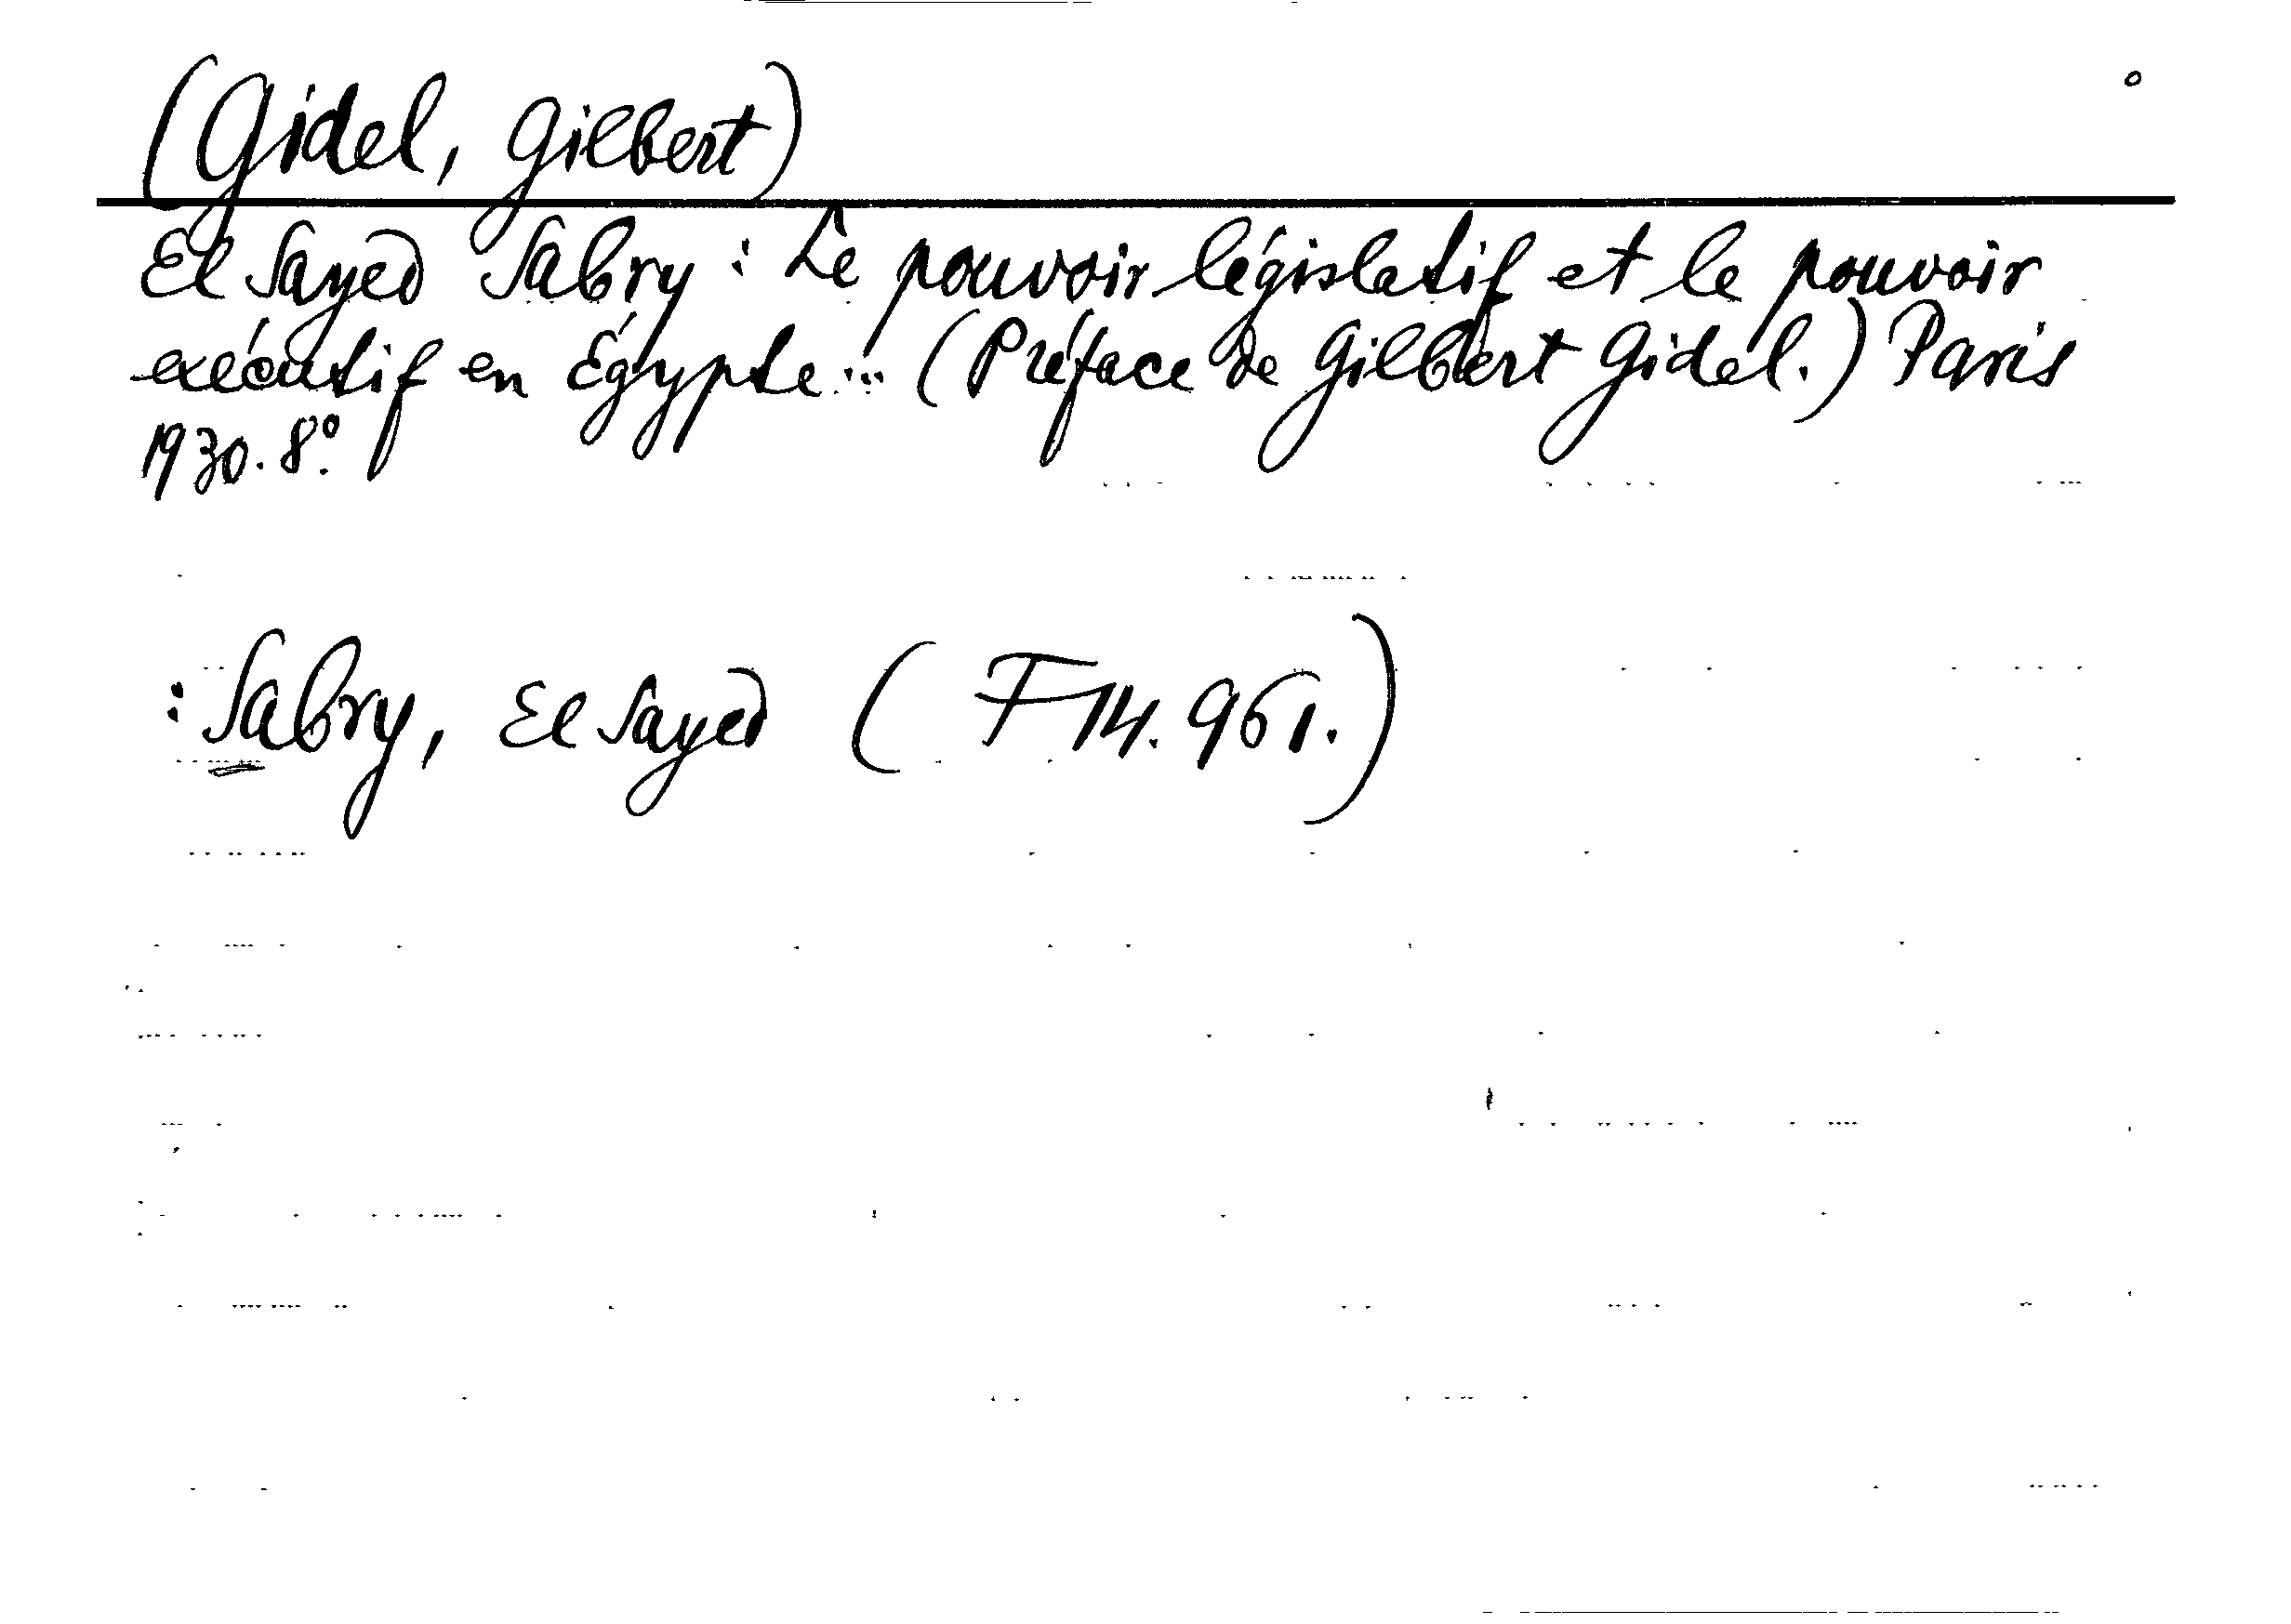 (Gidel, Gilbert)
El Sayed Sabry: Le pouvoir législatif et le pouvoir
exécutif en Égypte... (Préface de Gilbert Gidel.) Paris
1930. 8°.
: Sabry, El Sayed (F 14.961.)